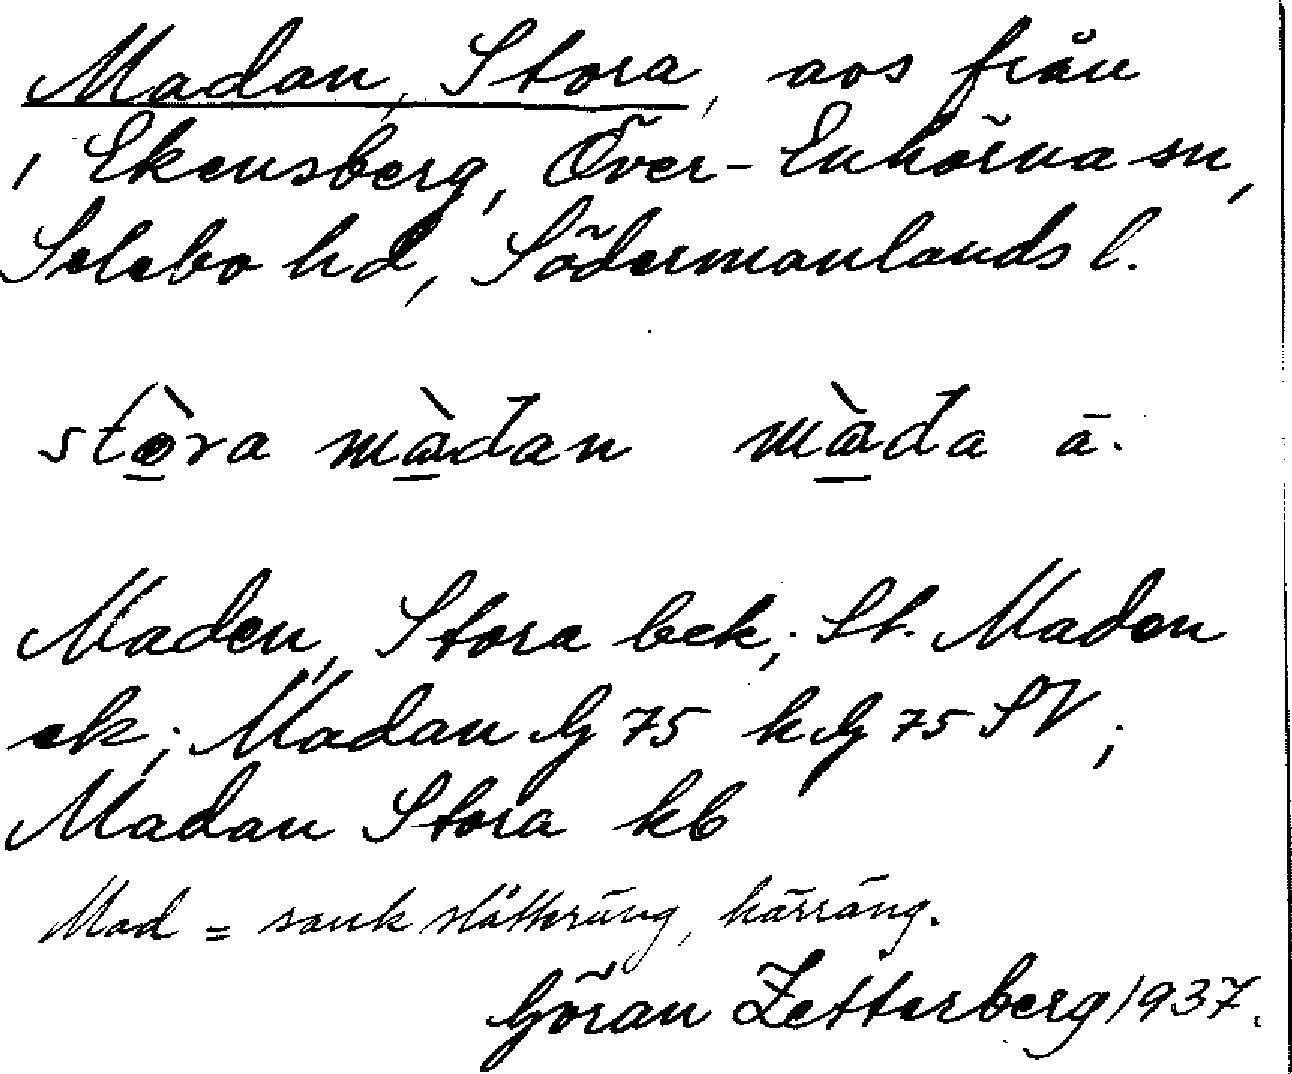 Madan, Stora, aos från
, Ekensberg, Över-Enhörna sn,
Selebo hd, Södermanlands l.
stò̲ra mà̲dan mà̲da ä.
Maden, Stora bek; St. Madon
ek; Madan G 75 k G 75 SV;
Madan Stora kb
Mad = sank slåtteräng, kärräng.
Göran Zetterberg 1937.